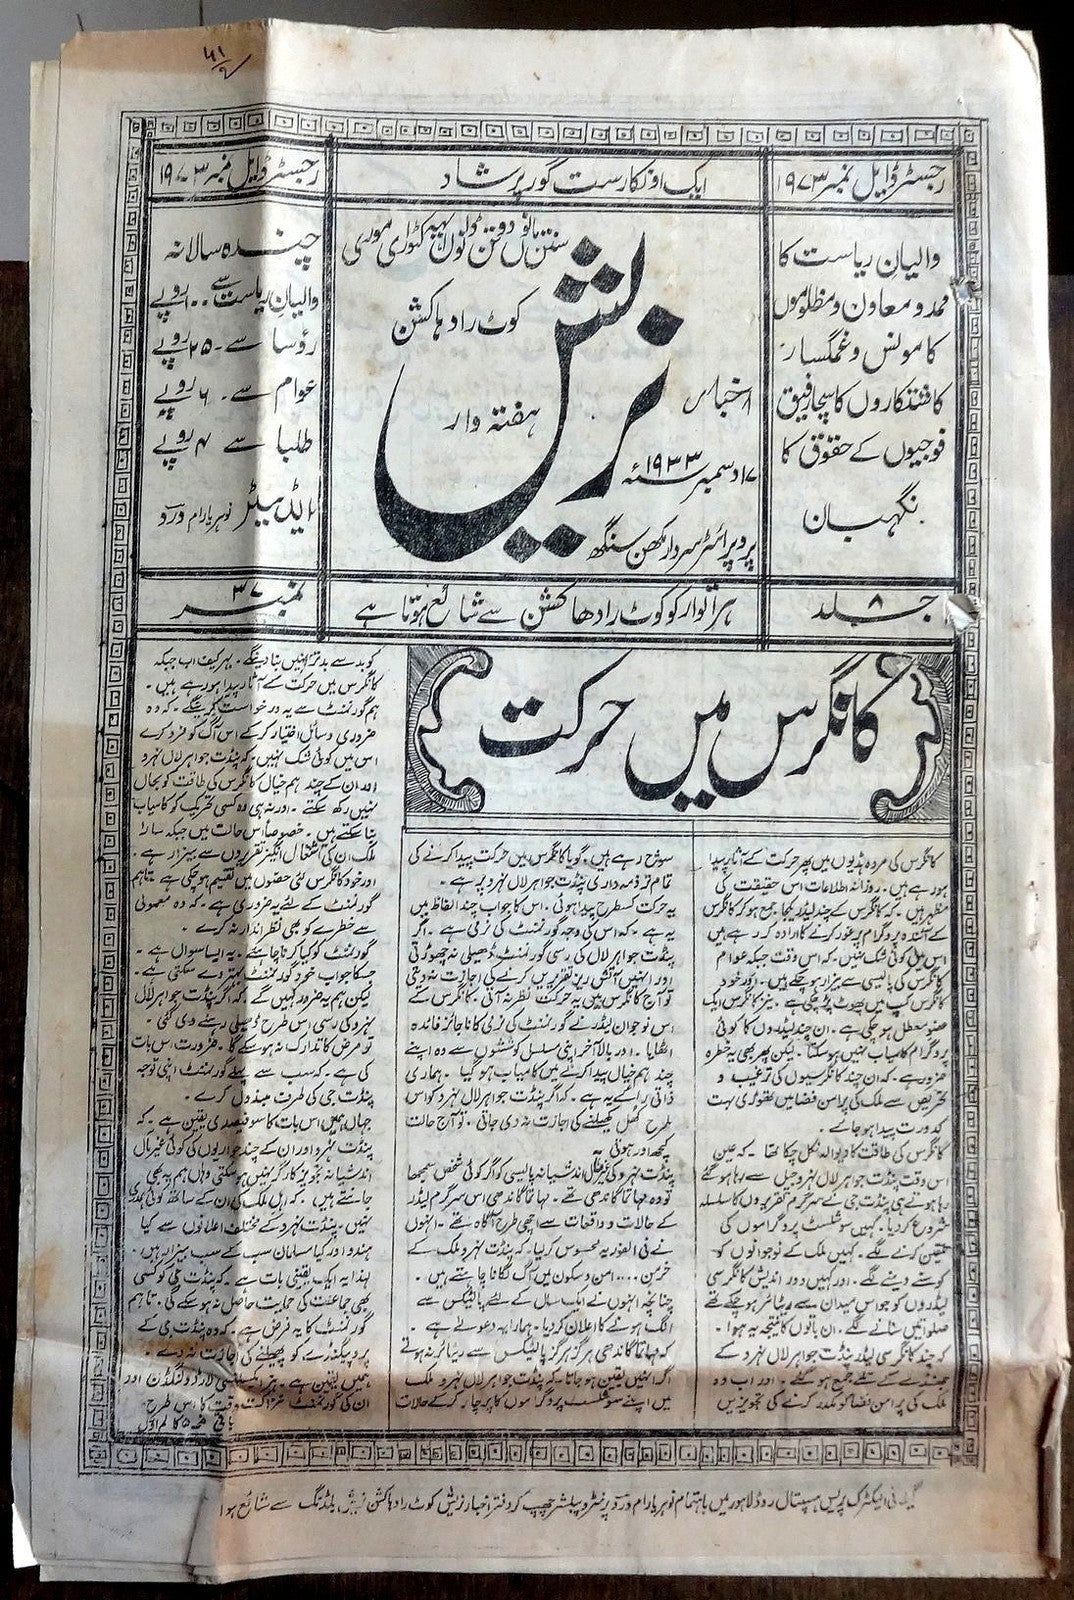 رجسٹرڈ ایل نمبر ۱۹۷۳
ایک اونکار ست گور پرشاد
رجسٹرڈ ایل نمبر ۱۹۷۳
والیان ریاست کا
ممدو معاون و مظلوموں
کا مونس و غمگسار
کاشتکاروں کا سچا رفیق
فوجیوں کے حقوق کا
نگہبان
نریش
کوٹ رادہاکشن
اخبار
ہفتہ وار
۱۷ دسمبر ۱۹۳۳ء
پروپرائٹر سردار مکھن سنگھ
چندہ سالانہ
والیان ریاست سے ۱۰۰ روپے
رؤسا سے ۲۵ روپے
عوام سے ۶ روپے
طلبا سے ۴ روپے
ایڈیٹر نوہریا رام درد
جلد ۸
ہر اتوار کو کوٹ رادھاکشن سے شائع ہوتا ہے
نمبر ۳۷
کانگرس میں حرکت
کانگرس کی مردہ ہڈیوں میں پھر حرکت کے آثار پیدا
ہو رہے ہیں۔ روزانہ اطلاعات اس حقیقت کی
مظہر ہیں۔ کہ کانگرس کے چند لیڈر یکجا جمع ہو کر کانگرس
کے آئندہ پروگرام پر غور کرنے کا ارادہ کر رہے ہیں
اس میں کوئی شک نہیں۔ کہ اس وقت جبکہ عوام
کانگرس کی پالیسی سے بیزار ہو چکے ہیں۔ اور خود
کانگرس کیمپ میں پھوٹ پڑ چکی ہے۔ نیز کانگرس ایک
عضو معطل ہو چکی ہے۔ ان چند لیڈروں کا کوئی
پروگرام کامیاب نہیں ہو سکتا۔ لیکن پھر بھی یہ خطرہ
ضرور ہے۔ کہ ان چند کانگرسیوں کی ترغیب و
تحریص سے ملک کی پرامن فضا میں تھوڑی بہت
کدورت پیدا ہو جائے۔
کانگرس کی طاقت کا دیوالہ نکل چکا تھا۔ کہ عین
اس وقت پنڈت جواہر لال نہرو جیل سے رہا ہو گئے
رہا ہوتے ہی پنڈت جی نے سرگرم تقریروں کا سلسلہ
شروع کر دیا۔ کہیں سوشلسٹ پروگراموں کی
تلقین کرنے لگے۔ کہیں ملک کے نوجوانوں کو
کوسنے دینے لگے۔ اور کہیں دور اندیش کانگرسی
لیڈروں کو جو اس میدان سے ریٹائر ہو چکے تھے
صلواتیں سنانے لگے۔ ان باتوں کا نتیجہ یہ ہوا۔
کہ چند کانگرسی لیڈر پنڈت جواہر لال نہرو کے
جھنڈے کے تلے جمع ہو گئے۔ اور اب وہ
ملک کی پرامن فضا کو مکدر کرنے کی تجویزیں
سوچ رہے ہیں۔ گویا کانگرس میں حرکت پیدا کرنے کی
تمام تر ذمہ داری پنڈت جواہر لال نہرو پر ہے۔
یہ حرکت کسطرح پیدا ہوئی۔ اس کا جواب چند الفاظ میں
یہ ہے۔ کہ اس کی وجہ گورنمنٹ کی نرمی ہے۔ اگر
پنڈت جواہر لال کی رسی گورنمنٹ ڈھیلی نہ چھوڑتی
اور انہیں آتش ریز تقریریں کرنے کی اجازت نہ دیتی
تو آج کانگرس میں یہ حرکت نظر نہ آتی۔ کانگرس کے
اس نوجوان لیڈر نے گورنمنٹ کی نرمی کا ناجائز فائدہ
اٹھایا۔ اور بالآخر اپنی مسلسل کوششوں سے وہ اپنے
چند ہم خیال پیدا کرنے میں کامیاب ہو گیا۔ ہماری
ذاتی رائے یہ ہے۔ کہ اگر پنڈت جواہر لال نہرو کو اس
طرح کھل کھیلنے کی اجازت نہ دی جاتی۔ تو آج حالت
کچھ اور ہوتی
پنڈت نہرو کی غیر مآل اندیشانہ پالیسی کو اگر کوئی شخص سمجھا
تو وہ مہاتما گاندھی تھے۔ مہاتما گاندھی اس سرگرم لیڈر
کے حالات و واقعات سے اچھی طرح آگاہ تھے۔ انہوں
نے فی الفور یہ محسوس کر لیا۔ کہ پنڈت نہرو ملک کے
خرمن .... امن و سکون میں آگ لگانا چاہتے ہیں۔
چنانچہ انہوں نے ایک سال کے لئے پالیٹکس سے
الگ ہونے کا اعلان کر دیا۔ ہمارا یہ دعوےٰ ہے۔
کہ مہاتما گاندھی ہرگز ہرگز پالیٹکس سے ریٹائر نہ ہوتے
اگر انہیں یقین ہو جاتا۔ کہ پنڈت جواہر لال نہرو ملک
میں اپنے سوشلسٹ پروگراموں کا پرچار کر کے حالات
کو بد سے بدتر نہیں بنا دینگے۔ بہر کیف اب جبکہ
کانگرس میں حرکت کے آثار پیدا ہو رہے ہیں۔
ہم گورنمنٹ سے یہ درخواست کرینگے۔ کہ وہ
ضروری وسائل اختیار کر کے اس آگ کو فرو کرے
اس میں کوئی شک نہیں۔ کہ پنڈت جواہر لال نہرو
اور ان کے چند ہم خیال کانگرس کی طاقت کو بحال
نہیں رکھ سکتے۔ اور نہ ہی وہ کسی تحریک کو کامیاب
بنا سکتے ہیں۔ خصوصاً اس حالت میں جبکہ سارا
ملک ان کی اشتعال انگیز تقریروں سے بیزار ہے۔
اور خود کانگرس کئی حصوں میں تقسیم ہو چکی ہے تاہم
گورنمنٹ کے لئے یہ ضروری ہے۔ کہ وہ معمولی
سے خطرے کو بھی نظر انداز نہ کرے۔
گورنمنٹ کو کیا کرنا چاہئے۔ یہ ایسا سوال ہے۔
جسکا جواب خود گورنمنٹ بہتر دے سکتی ہے۔
لیکن ہم یہ ضرور کہیں گے۔ کہ اگر پنڈت جواہر لال
نہرو کی رسی اس طرح ڈھیلی رہنے دی گئی۔
تو مرض کا تدارک نہ ہو سکے گا۔ ضرورت اس بات
کی ہے۔ کہ سب سے پہلے گورنمنٹ اپنی توجہ
پنڈت جی کی طرف مبذول کرے۔
جہاں ہمیں اس بات کا سو فیصدی یقین ہے۔ کہ
پنڈت نہرو اور ان کے چند حواریوں کی کوئی غیر مآل
اندیشانہ تجویز کارگر نہیں ہو سکتی وہاں ہم یہ بھی
جانتے ہیں۔ کہ اہل ملک کی ان کے ساتھ کوئی ہمدردی
نہیں۔ پنڈت نہرو کے مختلف اعلانوں سے کیا
ہندو اور کیا مسلمان سب کے سب بیزار ہیں۔
لہذا یہ ایک یقینی بات ہے۔ کہ پنڈت جی کو کسی
بھی جماعت کی حمایت حاصل نہ ہو سکے گی۔ تاہم
گورنمنٹ کا یہ فرض ہے۔ کہ وہ پنڈت جی کے
پروپیگنڈے کو پھیلنے کی اجازت نہ دے۔
ہمیں یقین ہے۔ ہز ایکسیلنسی لارڈ ولنگڈن اور
ان کی گورنمنٹ نزاکت وقت کا اس طرح
نوہریا رام درد پرنٹر و پبلشر چھپ کر دفتر اخبار نریش کوٹ رادہاکشن نریش بلڈنگ سے شائع ہوا